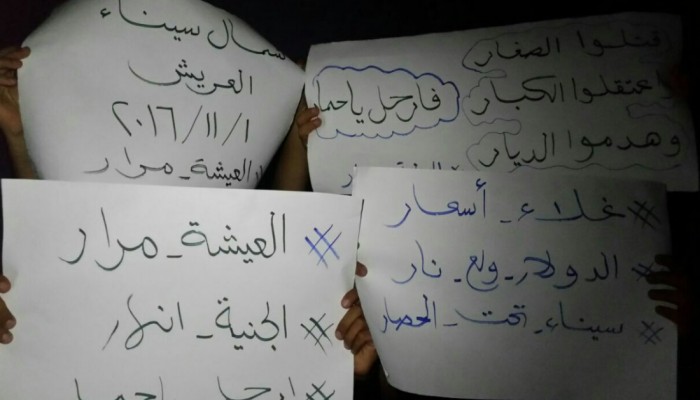 شمال سيناء
العريش
٢٠١٦/١١/١
العيشة_مرار
قتلوا الصغار
اعتقلوا الكبار
وهدموا الديار
فارحل يا حمار
#العيشة_مرار
#الجنية_انهار
#غلاء_أسعار
#الدولار_ولع_نار
#سيناء_تحت_الحصار